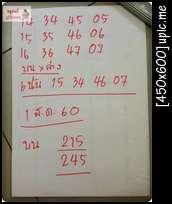 14 34 45 05
15 35 46 06
16 36 47 07
บน × ล่าง
เน้น 15 34 46 07
1 ส.ค. 60
บน 215
245
[450x600] upic.me